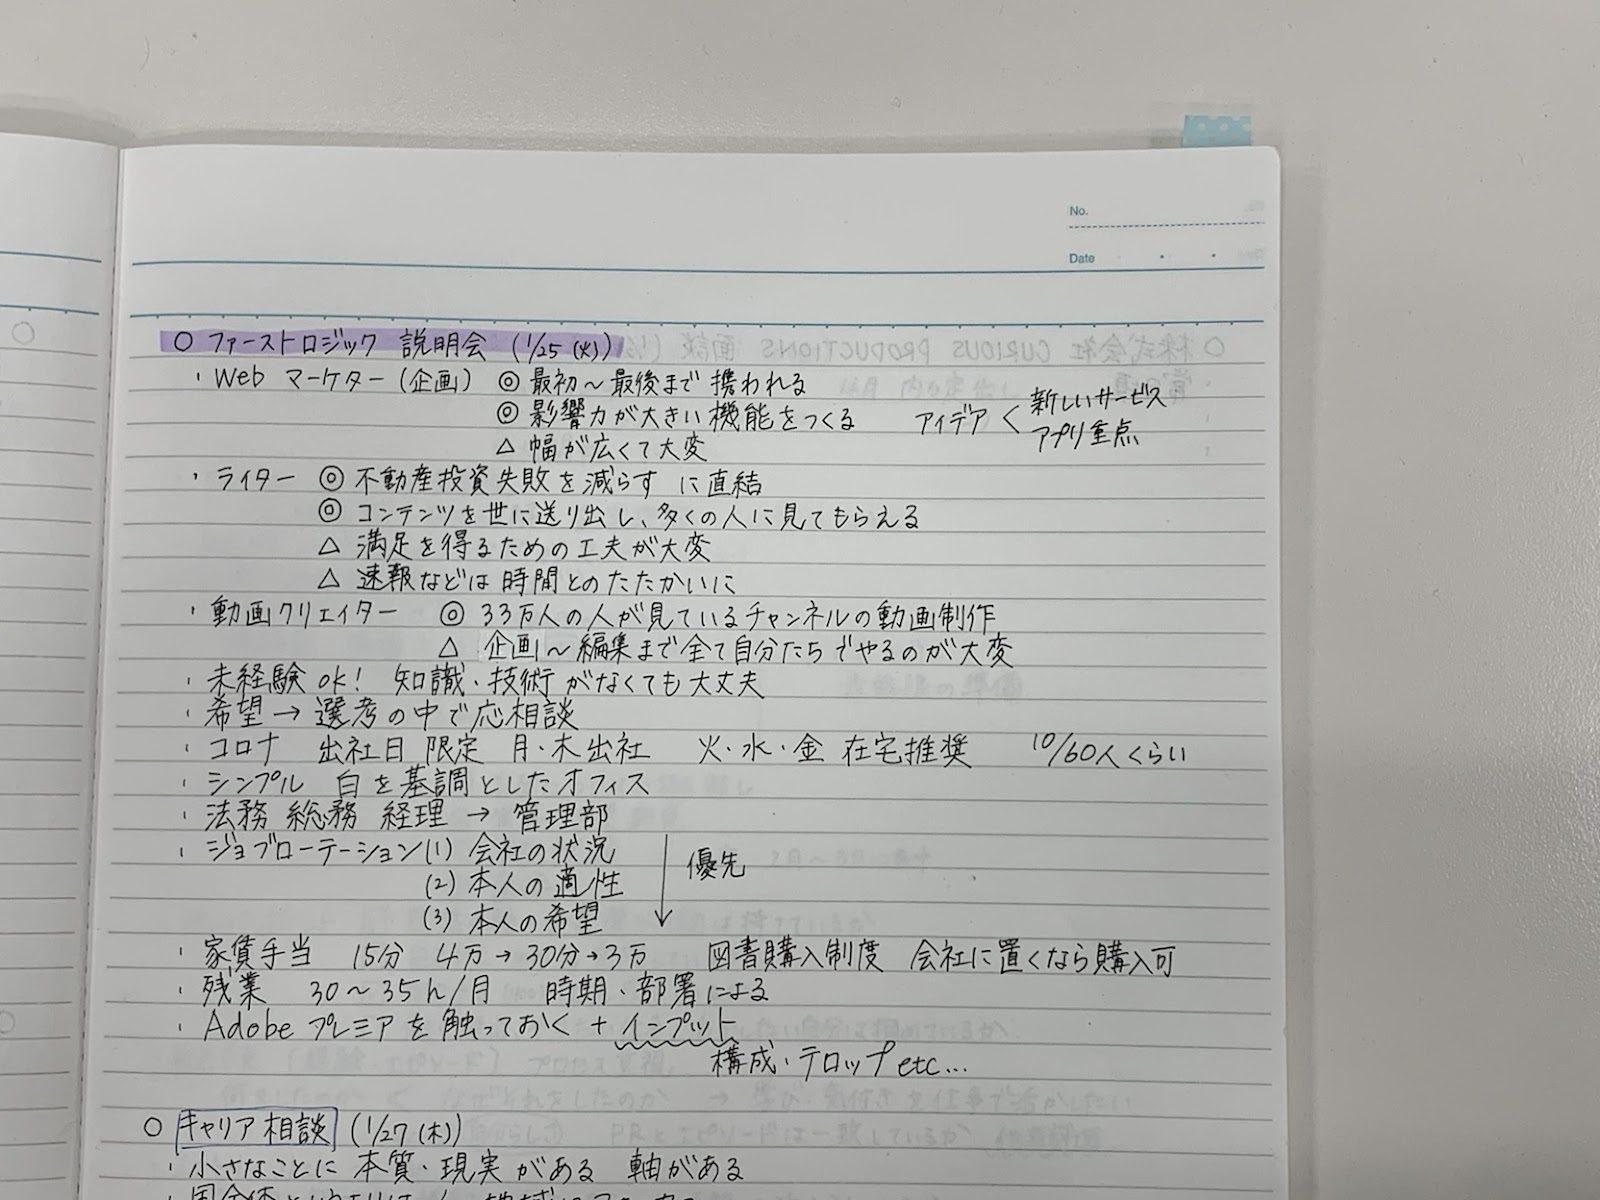 No.
Date
○ ファーストロジック 説明会 (1/25 (火))
・Web マーケター (企画) ◎ 最初〜最後まで 携われる
◎ 影響力が大きい機能をつくる アイデア < 新しいサービス
アプリ重点
△ 幅が広くて大変
・ライター ◎ 不動産投資失敗を減らす に直結
◎ コンテンツを世に送り出し、多くの人に見てもらえる
△ 満足を得るための工夫が大変
△ 速報などは時間とのたたかいに
・動画クリエイター ◎ 33万人の人が見ているチャンネルの動画制作
△ 企画〜編集まで全て自分たちでやるのが大変
・未経験 ok! 知識・技術がなくても大丈夫
・希望→選考の中で応相談
・コロナ 出社日 限定 月・木出社 火・水・金 在宅推奨 10/60人くらい
・シンプル 白を基調としたオフィス
・法務 総務 経理 → 管理部
・ジョブローテーション (1) 会社の状況
(2) 本人の適性 優先
(3) 本人の希望
・家賃手当 15分 4万→30分→3万 図書購入制度 会社に置くなら購入可
・残業 30〜35h/月 時期・部署による
・Adobe プレミアを触っておく + インプット
構成・テロップ etc...
○ キャリア相談 (1/27 (木))
・小さなことに 本質・現実 がある 軸がある